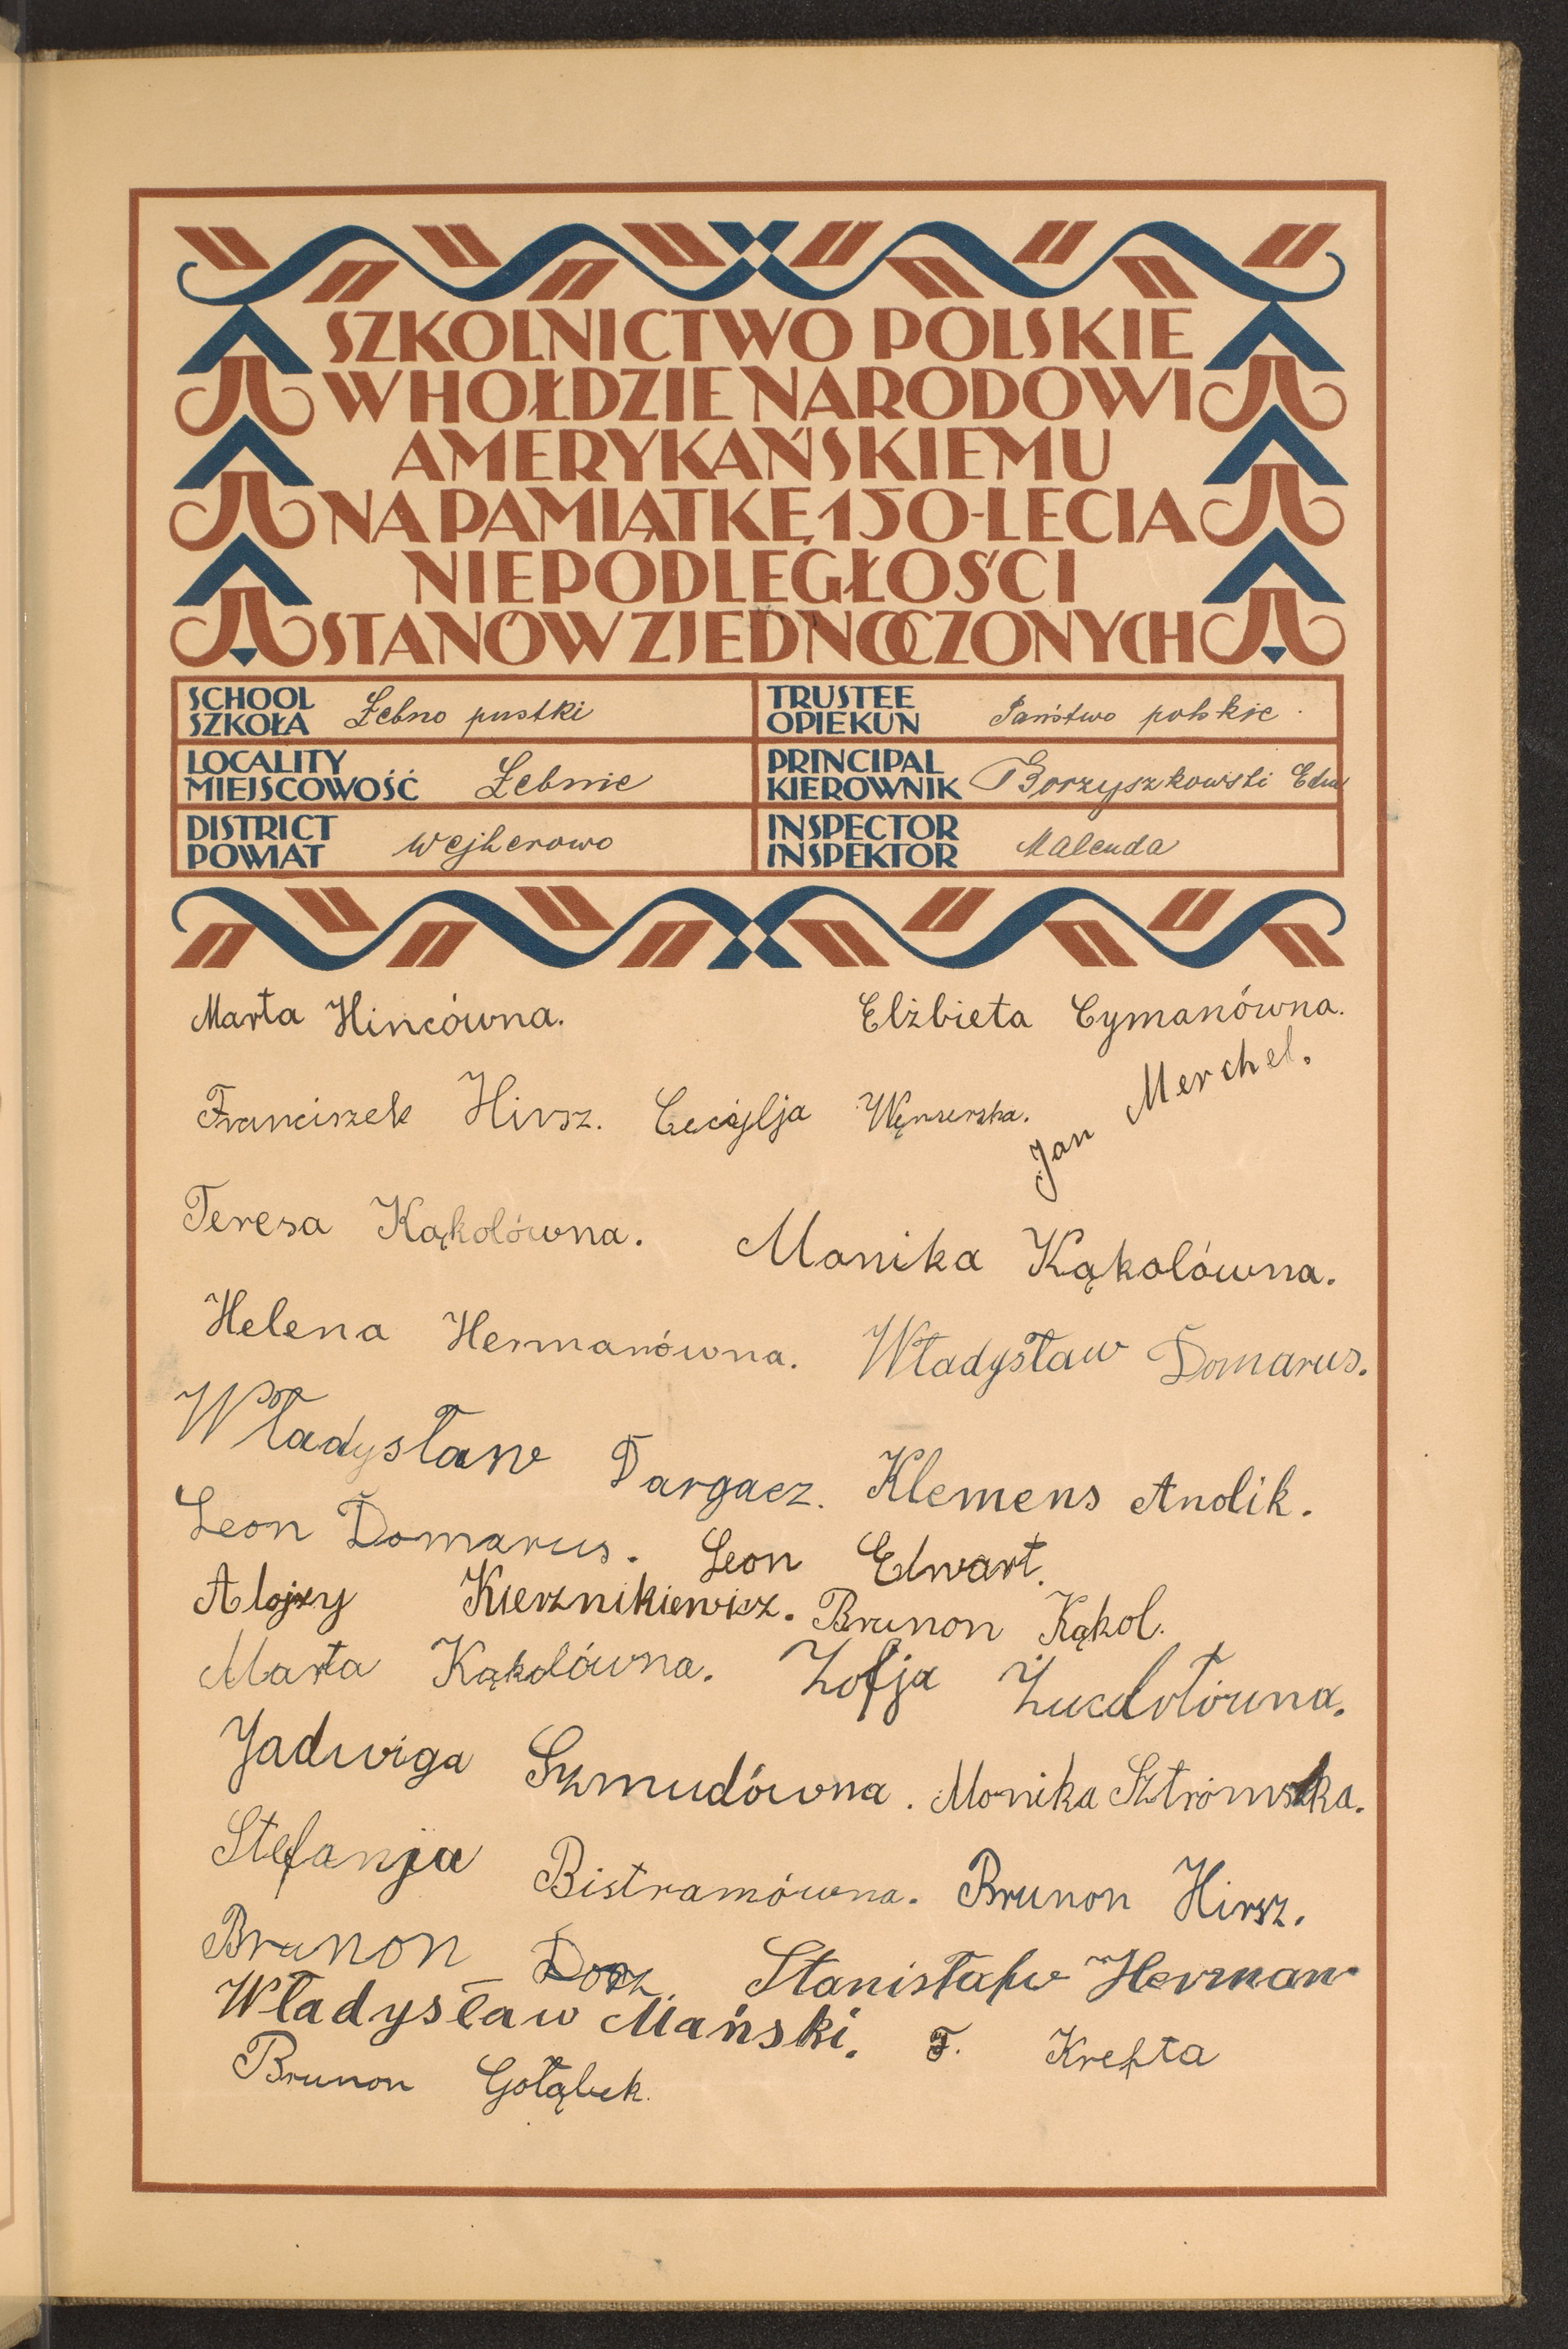 SZKOLNICTWO POLSKIE
W HOŁDZIE NARODOWI
AMERYKAŃSKIEMU
NA PAMIĄTKĘ 150-LECIA
NIEPODLEGŁOŚCI
STANÓW ZJEDNOCZONYCH
SCHOOL
SZKOŁA Łebno pustki
TRUSTEE
OPIEKUN Państwo polskie
LOCALITY
MIEJSCOWOŚĆ Łebnie
PRINCIPAL
KIEROWNIK Borzyszkowski Edm
DISTRICT
POWIAT Wejherowo
INSPECTOR
INSPEKTOR Malenda
Marta Hincówna. Elżbieta Cymanówna.
Franciszek Hirsz. Jan Merchel.
Teresa Kąkolówna. Monika Kąkolówna.
Helena Hermanówna. Władysław Domarus.
Władysław Dargacz. Klemens Anolik.
Leon Domarus. Leon Elwart.
Alojzy Kierznikiewicz. Brunon Kąkol.
Marta Kąkolówna. Zofja
Jadwiga Szmudówna. Monika
Stefanja Bistramówna. Brunon Hirsz.
Brunon Stanisław Herman
Władysław Mański. F. Krefta
Brunon Gołąbek.